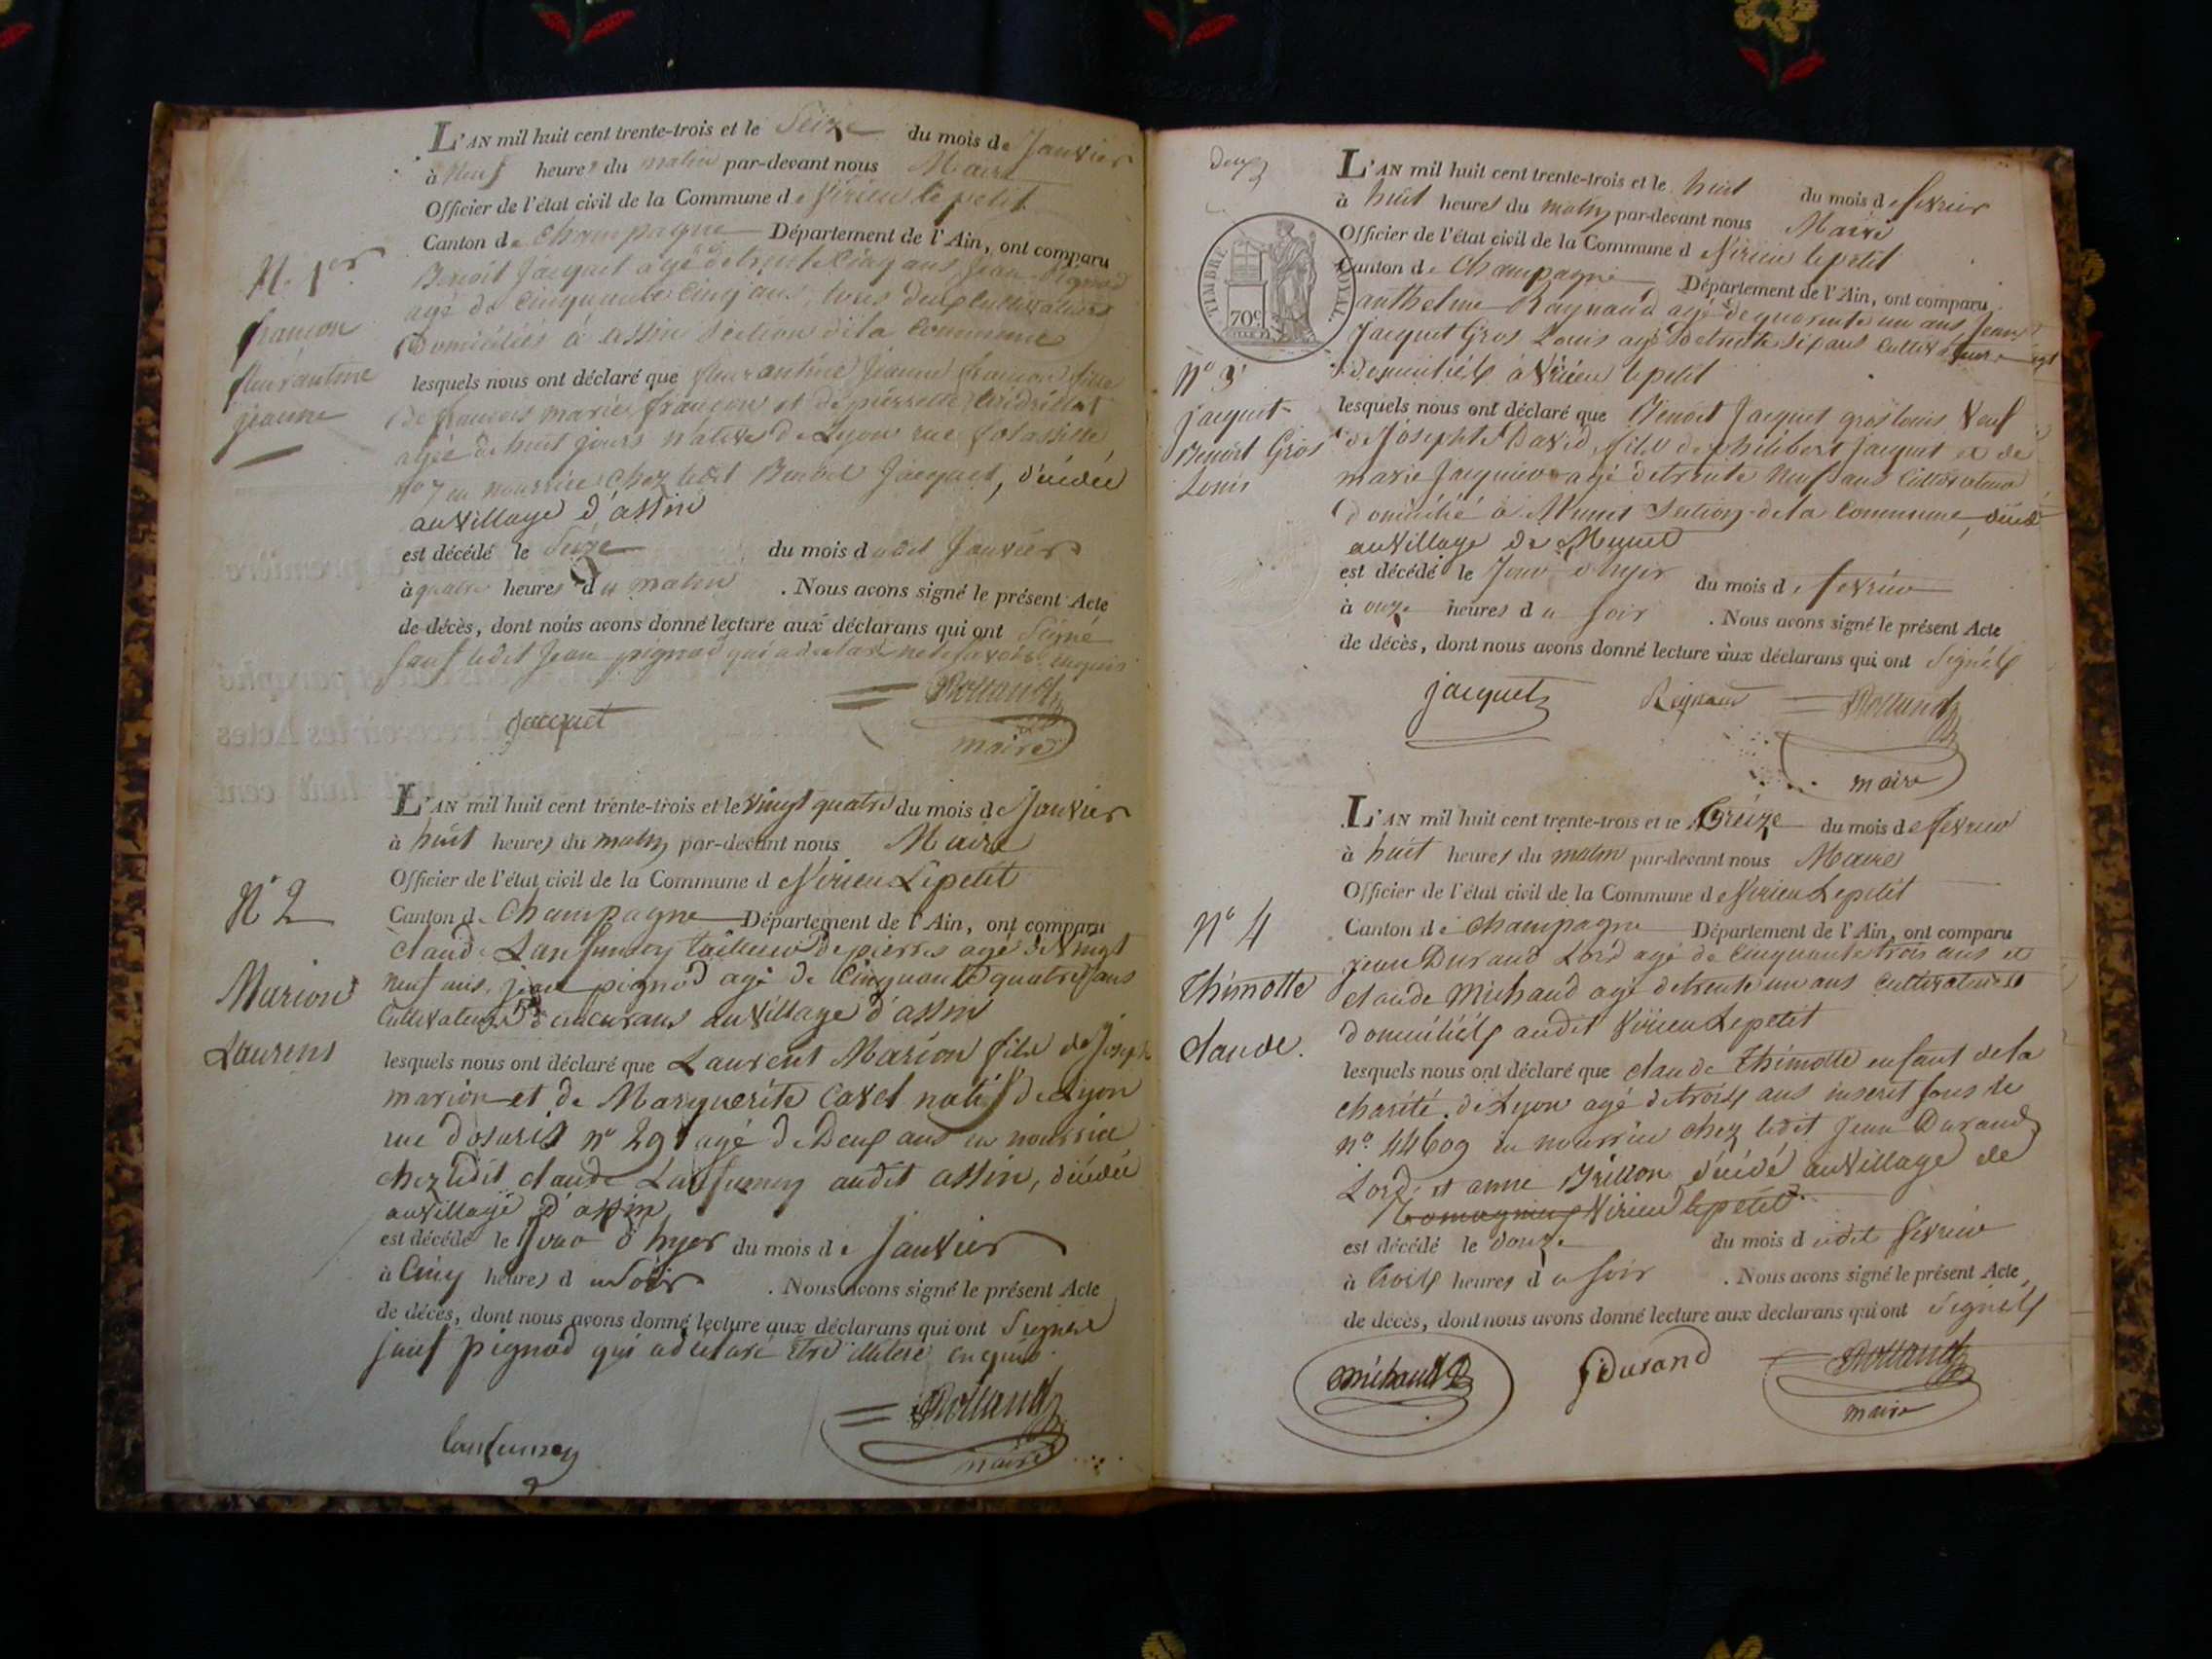 L'AN mil huit cent trente-trois et le Seize du mois de Janvier
à Neuf heures du matin par-devant nous Maire
Officier de l'état civil de la Commune de Virieu le petit
Canton de Champagne Département de l'Ain, ont comparu
Benoit Jacquet agé de trente cinq ans, Jean Pignod
agé de cinquante cinq ans, tous deux cultivateurs
Domiciliés à assin Section de la Commune
lesquels nous ont déclaré que fleurantine Jeanne françon fille
de françois marie françon et de pierrette
agée de huit jours Native de Lyon rue
No 7 en nourrice chez ledit Benoit Jacquet, décédée
au Village d'assin
est décédé le Seize du mois dudit Janvier
à quatre heures du matin . Nous avons signé le présent Acte
de décès, dont nous avons donné lecture aux déclarans qui ont Signé
Sauf ledit Jean pignod qui a déclaré ne le savoir enquis
Rolland
Jacquet
maire
N. 1er
françon
fleurantine
jeanne
L'AN mil huit cent trente-trois et le Vingt quatre du mois de Janvier
à huit heures du matin par-devant nous Maire
Officier de l'état civil de la Commune de Virieu Lepetit
Canton de Champagne Département de l'Ain, ont comparu
claude Lanfumey tailleur de pierres agé de Vingt
neuf ans, jean pignod agé de Cinquante quatre ans
Cultivateurs demeurans au Village d'assin
lesquels nous ont déclaré que Laurent Marion fils de Joseph
marion et de Marguerite Cavet natif de Lyon
rue no 29 agé de Deux ans en nourrice
chez ledit claude Lanfumey audit assin, décédé
au Village d'assin
est décédé le Jour d'hyer du mois de Janvier
à Cinq heures du Soir . Nous avons signé le présent Acte
de décès, dont nous avons donné lecture aux déclarans qui ont Signés
sauf pignod qui a déclaré être illiteré enquis.
Rolland
lanfumey
maire
No 2
Marion
Laurens
deux
TIMBRE ROYAL
70c
L'AN mil huit cent trente-trois et le huit du mois de fevrier
à huit heures du matin par-devant nous Maire
Officier de l'état civil de la Commune de Virieu lepetit
Canton de Champagne Département de l'Ain, ont comparu
anthelme Raynaud agé de quarante un ans Jean
Jacquet Gros Louis agé de trente six ans cultivateurs
domiciliés à Virieu lepetit
lesquels nous ont déclaré que Benoit Jacquet gros louis Veuf
de Josephte David, fils de philibert Jacquet et de
marie Jacquier agé de trente Neuf ans Cultivateur
domicilié à Munet Section de la Commune, décédé
au Village de Munet
est décédé le Jour d'hyer du mois de fevrier
à onze heures du soir . Nous avons signé le présent Acte
de décès, dont nous avons donné lecture aux déclarans qui ont Signés
jacquet Reynaud Rolland
maire
No 3
jacquet
Benoit Gros
Louis
L'AN mil huit cent trente-trois et le treize du mois de fevrier
à huit heures du matin par-devant nous Maire
Officier de l'état civil de la Commune de Virieu Lepetit
Canton de Champagne Département de l'Ain, ont comparu
jean Durand Lord agé de Cinquante trois ans et
claude Michaud agé de trente un ans Cultivateurs
domiciliés audit Virieu Lepetit
lesquels nous ont déclaré que claude Thimotte enfant de la
charité de Lyon agé de trois ans inscrit sous le
no. 44609 en nourrice chez ledit Jean Durand
Lord et anne Brillon décédé au Village de
Virieu lepetit
est décédé le douze du mois dudit fevrier
à trois heures du soir . Nous avons signé le présent Acte
de décès, dont nous avons donné lecture aux déclarans qui ont Signés
Michaud JDurand Rolland
maire
No 4
Thimotte
claude.